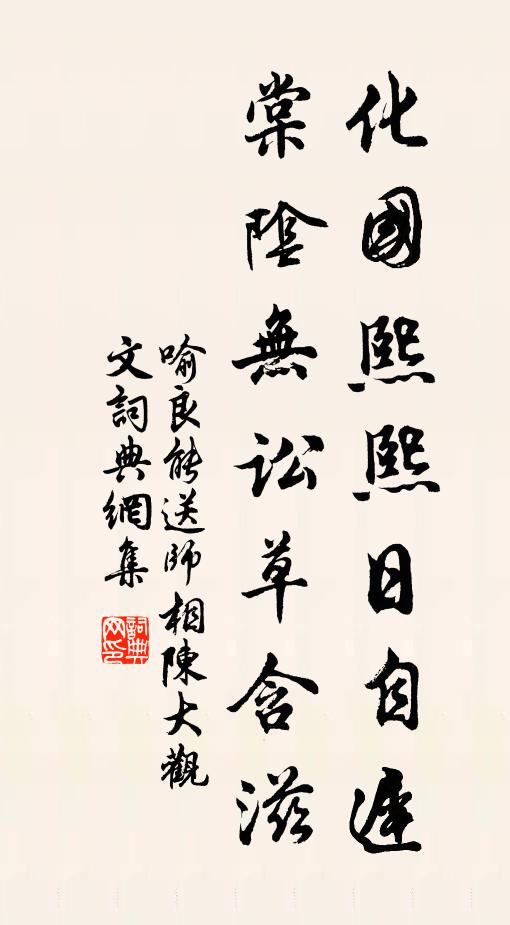 化國熙熙日自遲
棠陰無訟草含滋
喻良能送師相陳大觀
文詞典網集
詞典網印